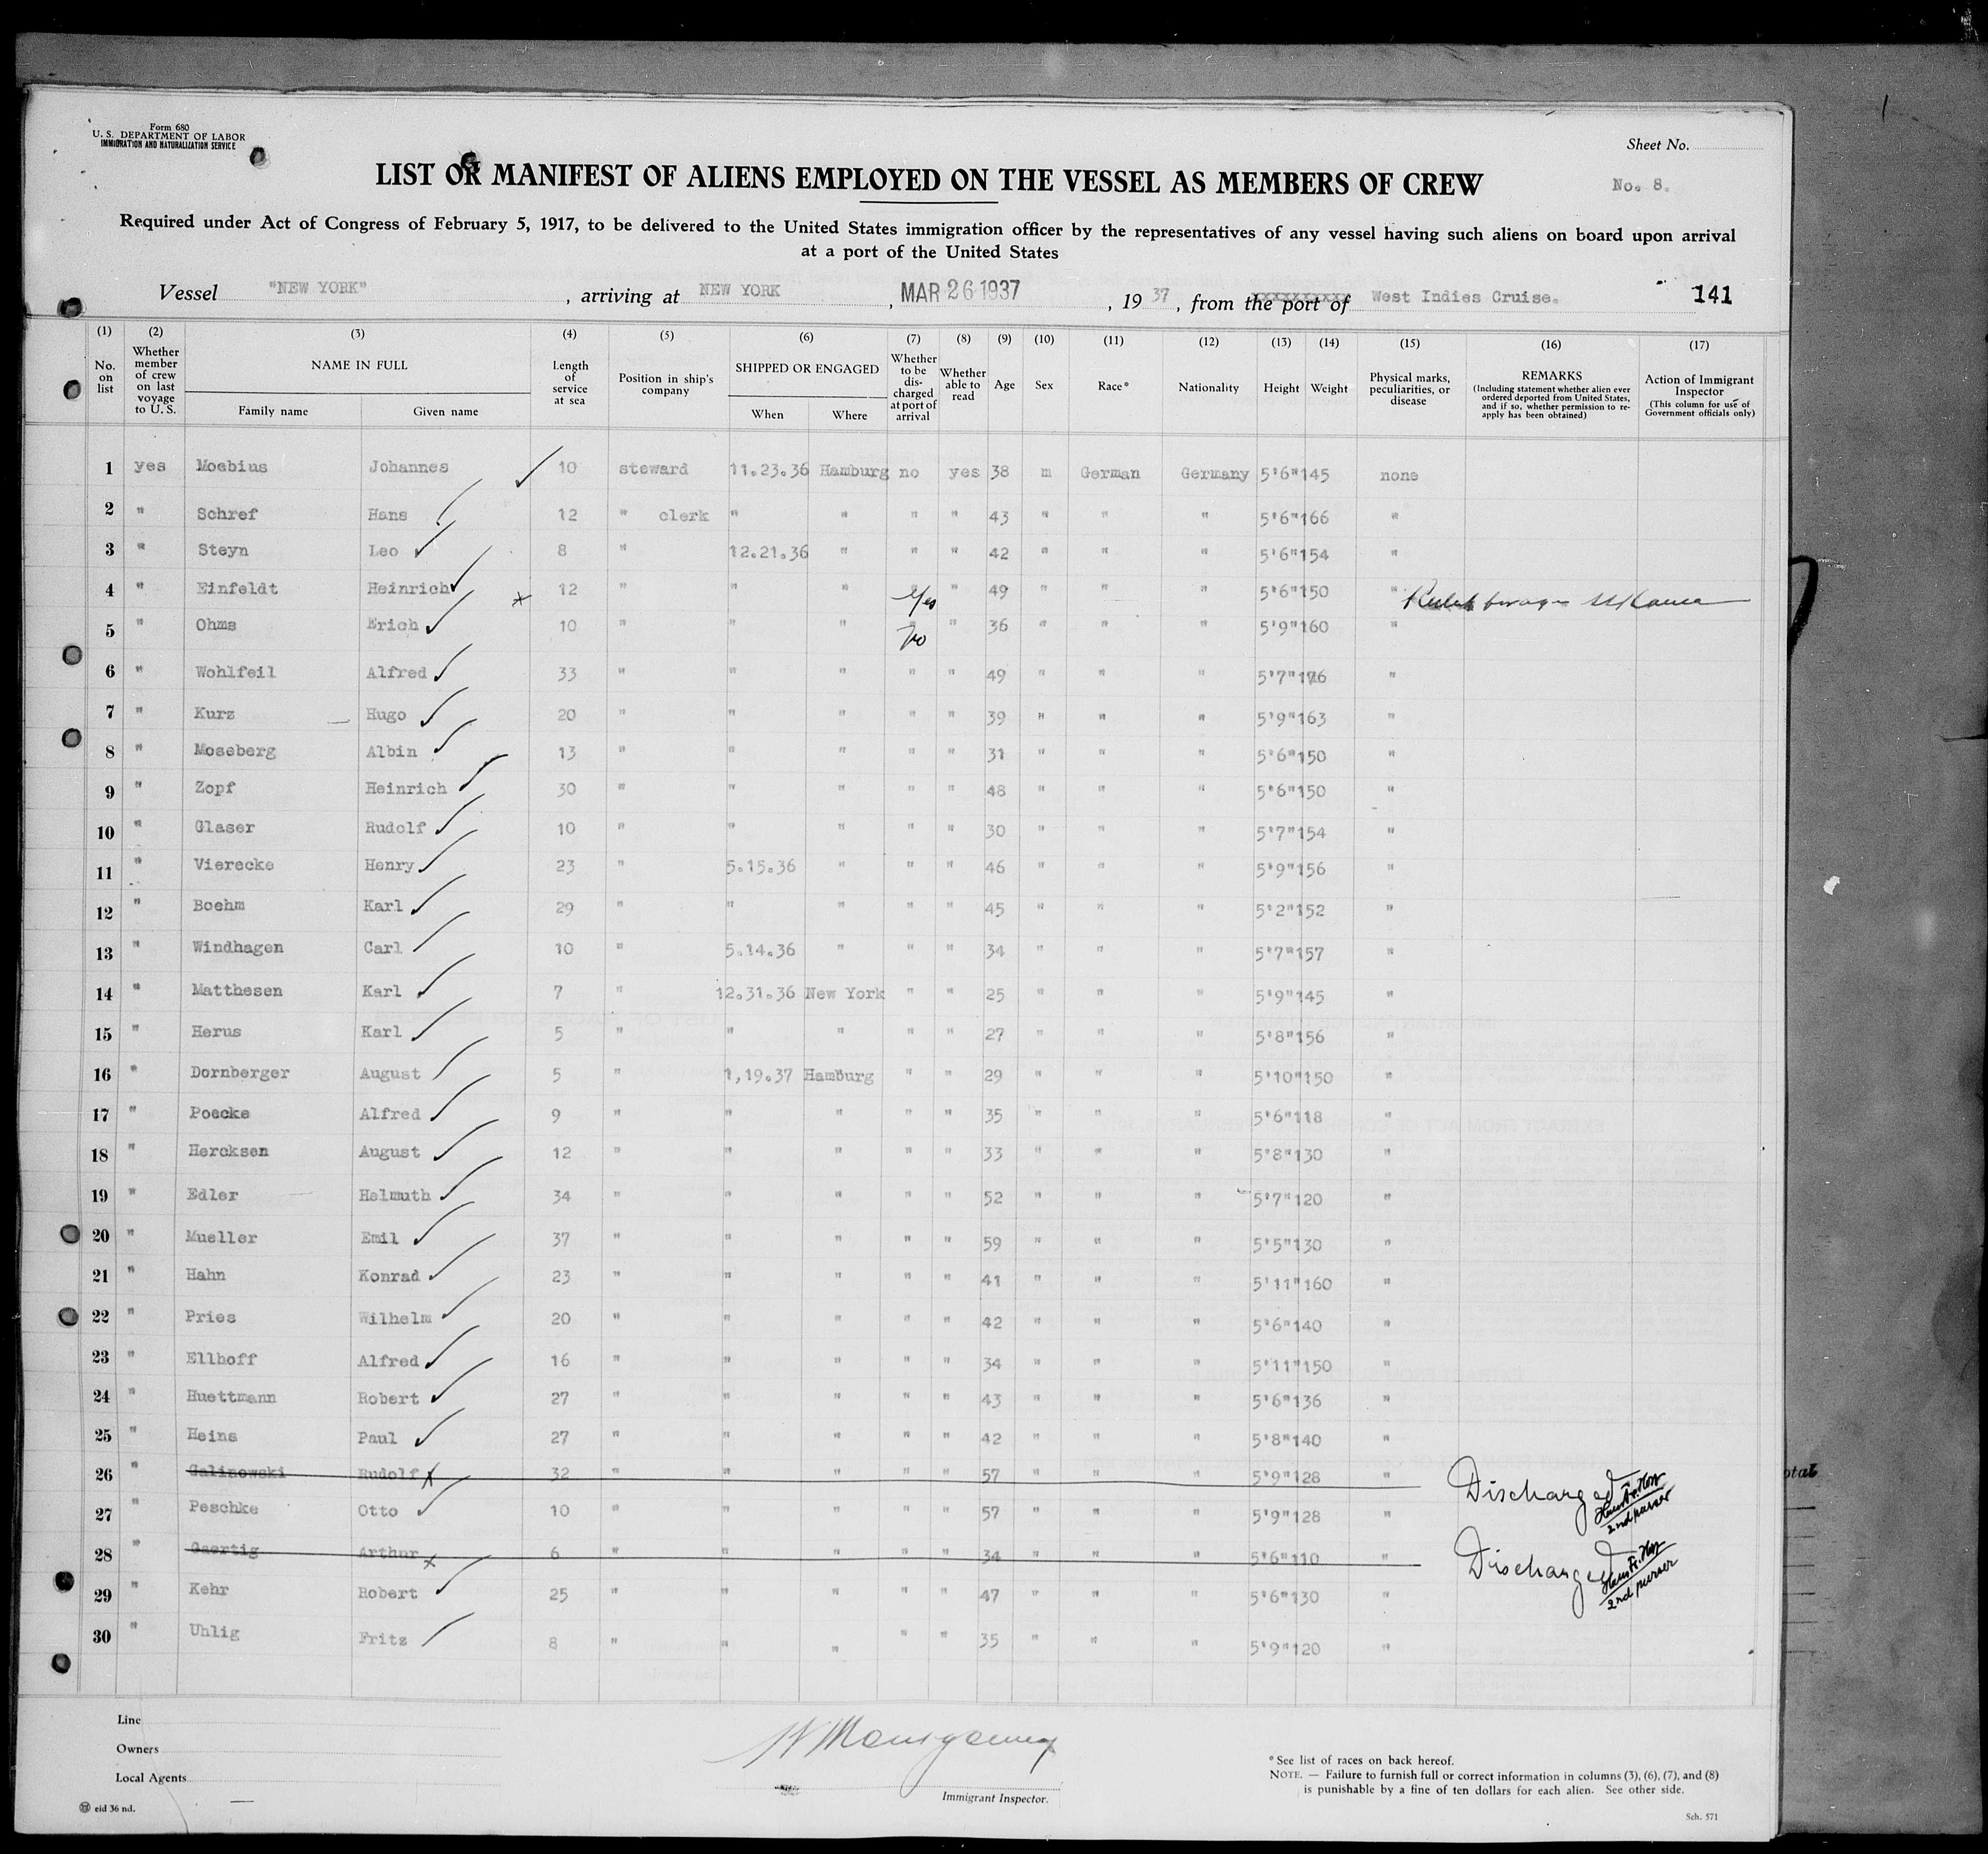 Form 680
U. S. DEPARTMENT OF LABOR
IMMIGRATION AND NATURALIZATION SERVICE
Sheet No.
No. 8.
LIST OR MANIFEST OF ALIENS EMPLOYED ON THE VESSEL AS MEMBERS OF CREW
Required under Act of Congress of February 5, 1917, to be delivered to the United States immigration officer by the representatives of any vessel having such aliens on board upon arrival
at a port of the United States
Vessel "NEW YORK", arriving at NEW YORK, MAR 26 1937, 1937, from the port of West Indies Cruise. 141
(1) No. on list
(2) Whether member of crew on last voyage to U. S.
(3) NAME IN FULL Family name Given name
(4) Length of service at sea
(5) Position in ship's company
(6) SHIPPED OR ENGAGED When Where
(7) Whether to be discharged at port of arrival
(8) Whether able to read
(9) Age
(10) Sex
(11) Race*
(12) Nationality
(13) Height
(14) Weight
(15) Physical marks, peculiarities, or disease
(16) REMARKS (Including statement whether alien ever ordered deported from United States, and if so, whether permission to re-apply has been obtained)
(17) Action of Immigrant Inspector (This column for use of Government officials only)
1 yes Moebius Johannes 10 steward 11.23.36 Hamburg no yes 38 m German Germany 5'6" 145 none
2 " Schref Hans 12 " clerk " " " " 43 " " " 5'6" 166 "
3 " Steyn Leo 8 " 12.21.36 " " " 42 " " " 5'6" 154 "
4 " Einfeldt Heinrich x 12 " " " " Yes " 49 " " " 5'6" 150 "
5 " Ohms Erich 10 " " " " No " 36 " " " 5'9" 160 "
6 " Wohlfeil Alfred 33 " " " " " 49 " " " 5'7" 176 "
7 " Kurz Hugo 20 " " " " " 39 " " " 5'9" 163 "
8 " Moseberg Albin 13 " " " " " 31 " " " 5'6" 150 "
9 " Zopf Heinrich 30 " " " " " 48 " " " 5'6" 150 "
10 " Glaser Rudolf 10 " " " " " 30 " " " 5'7" 154 "
11 " Vierecke Henry 23 " 5.15.36 " " " 46 " " " 5'9" 156 "
12 " Boehm Karl 29 " " " " " 45 " " " 5'2" 152 "
13 " Windhagen Carl 10 " 5.14.36 " " " 34 " " " 5'7" 157 "
14 " Matthesen Karl 7 " 12.31.36 New York " " 25 " " " 5'9" 145 "
15 " Herus Karl 5 " " " " " 27 " " " 5'8" 156 "
16 " Dornberger August 5 " 1,19.37 Hamburg " " 29 " " " 5'10" 150 "
17 " Poecke Alfred 9 " " " " " 35 " " " 5'6" 118 "
18 " Hercksen August 12 " " " " " 33 " " " 5'8" 130 "
19 " Edler Helmuth 34 " " " " " 52 " " " 5'7" 120 "
20 " Mueller Emil 37 " " " " " 59 " " " 5'5" 130 "
21 " Hahn Konrad 23 " " " " " 41 " " " 5'11" 160 "
22 " Pries Wilhelm 20 " " " " " 42 " " " 5'6" 140 "
23 " Ellhoff Alfred 16 " " " " " 34 " " " 5'11" 150 "
24 " Huettmann Robert 27 " " " " " 43 " " " 5'6" 136 "
25 " Heins Paul 27 " " " " " 42 " " " 5'8" 140 "
26 " Galinowski Rudolf x 32 " " " " " 57 " " " 5'9" 128 " Discharged 2nd purser
27 " Peschke Otto 10 " " " " " 57 " " " 5'9" 128 "
28 " Gaertig Arthur x 6 " " " " " 34 " " " 5'6" 110 " Discharged 2nd purser
29 " Kehr Robert 25 " " " " " 47 " " " 5'6" 130 "
30 " Uhlig Fritz 8 " " " " " 35 " " " 5'9" 120 "
Line
Owners
Local Agents
eid 36 nd.
Immigrant Inspector.
* See list of races on back hereof.
NOTE. — Failure to furnish full or correct information in columns (3), (6), (7), and (8)
is punishable by a fine of ten dollars for each alien. See other side.
Sch. 571